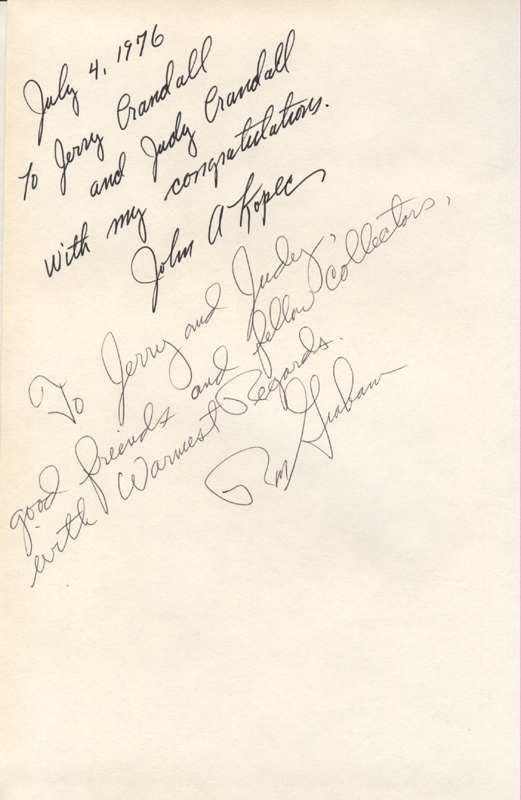 July 4, 1976
To Jerry Crandall
and Judy Crandall
with my congratulations.
John A Kopec
To Jerry and Judy,
good friends and fellow collectors,
with Warmest Regards.
Ron Graham